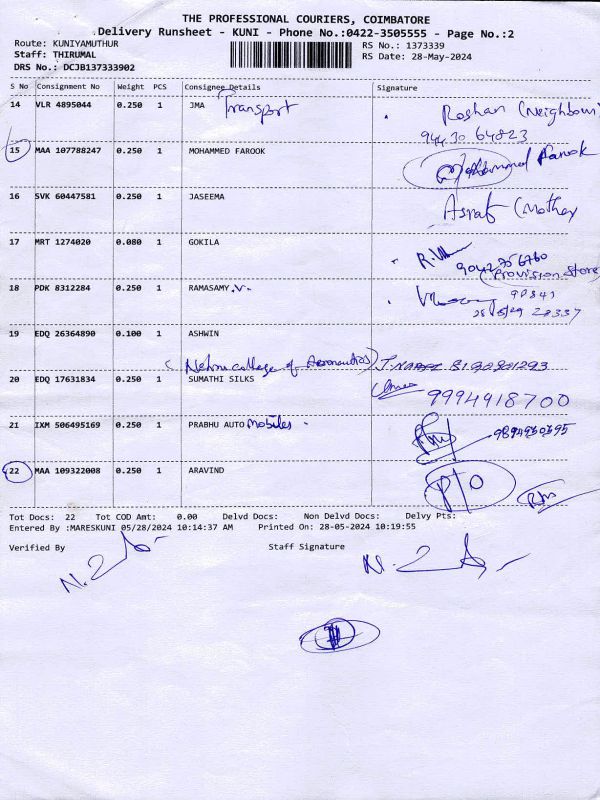 THE PROFESSIONAL COURIERS, COIMBATORE
Delivery Runsheet - KUNI - Phone No.:0422-3505555 - Page No.:2
Route: KUNIYAMUTHUR RS No.: 1373339
Staff: THIRUMAL RS Date: 28-May-2024
DRS No.: DCJB137333902
S No Consignment No Weight PCS Consignee Details Signature
14 VLR 4895044 0.250 1 JMA Transport Roshan (Neighbour)
944 30 64823
15 MAA 107788247 0.250 1 MOHAMMED FAROOK Mohammed Farook
16 SVK 60447581 0.250 1 JASEEMA Asraf (Mother
17 MRT 1274020 0.080 1 GOKILA
9042756760
(Provision Store)
18 PDK 8312284 0.250 1 RAMASAMY.V.
19 EDQ 26364890 0.100 1 ASHWIN
(Nehru college of Aeronautics)
20 EDQ 17631834 0.250 1 SUMATHI SILKS 9994918700
21 IXM 506495169 0.250 1 PRABHU AUTO Mobiles.
22 MAA 109322008 0.250 1 ARAVIND P/O
Tot Docs: 22 Tot COD Amt: 0.00 Delvd Docs: Non Delvd Docs: Delvy Pts:
Entered By :MARESKUNI 05/28/2024 10:14:37 AM Printed On: 28-05-2024 10:19:55
Verified By Staff Signature